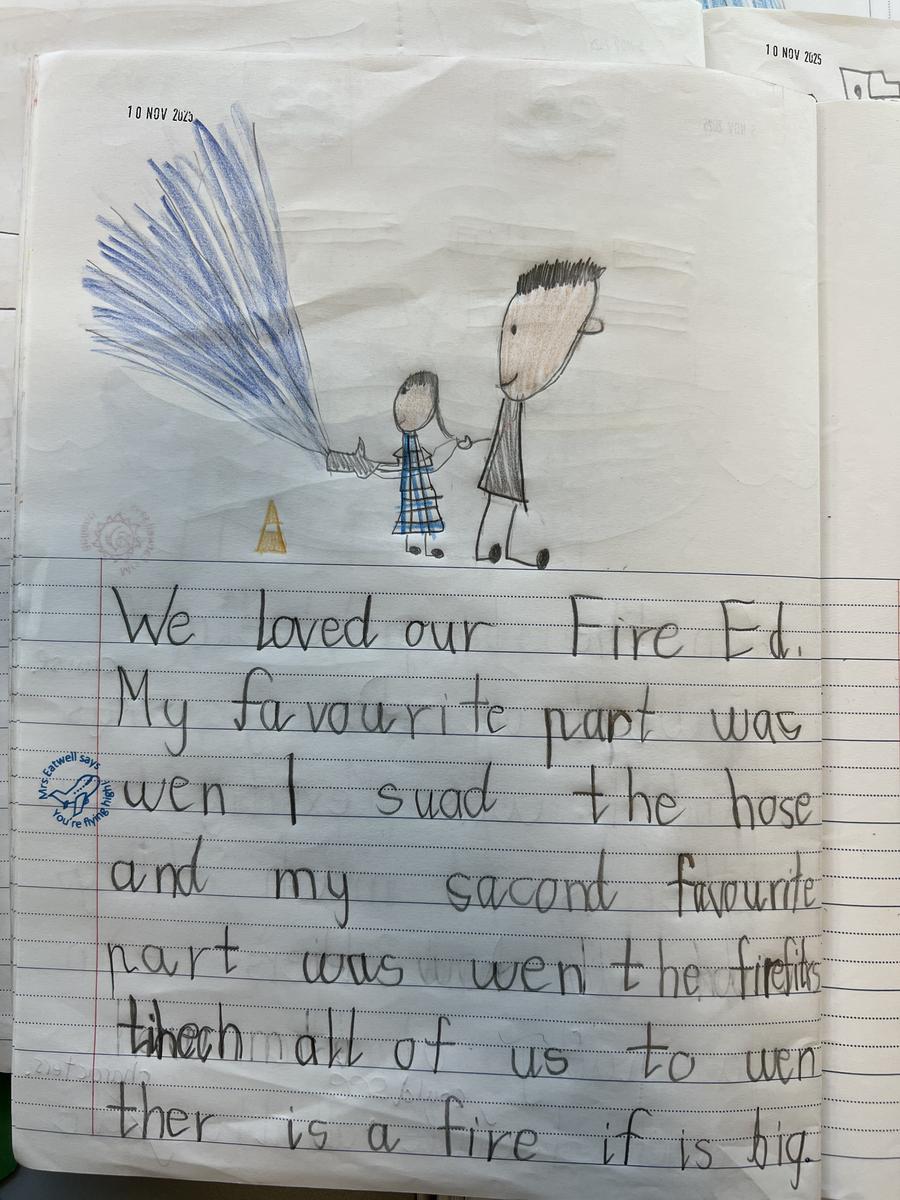 10 NOV 2025
10 NOV 2025
We loved our Fire Ed.
My favourite part was
wen I suad the hose
and my sacond favourite
part was wen the firefitrs
tihech all of us to wen
ther is a fire if is big.
Mrs Eatwell says
You're flying high!